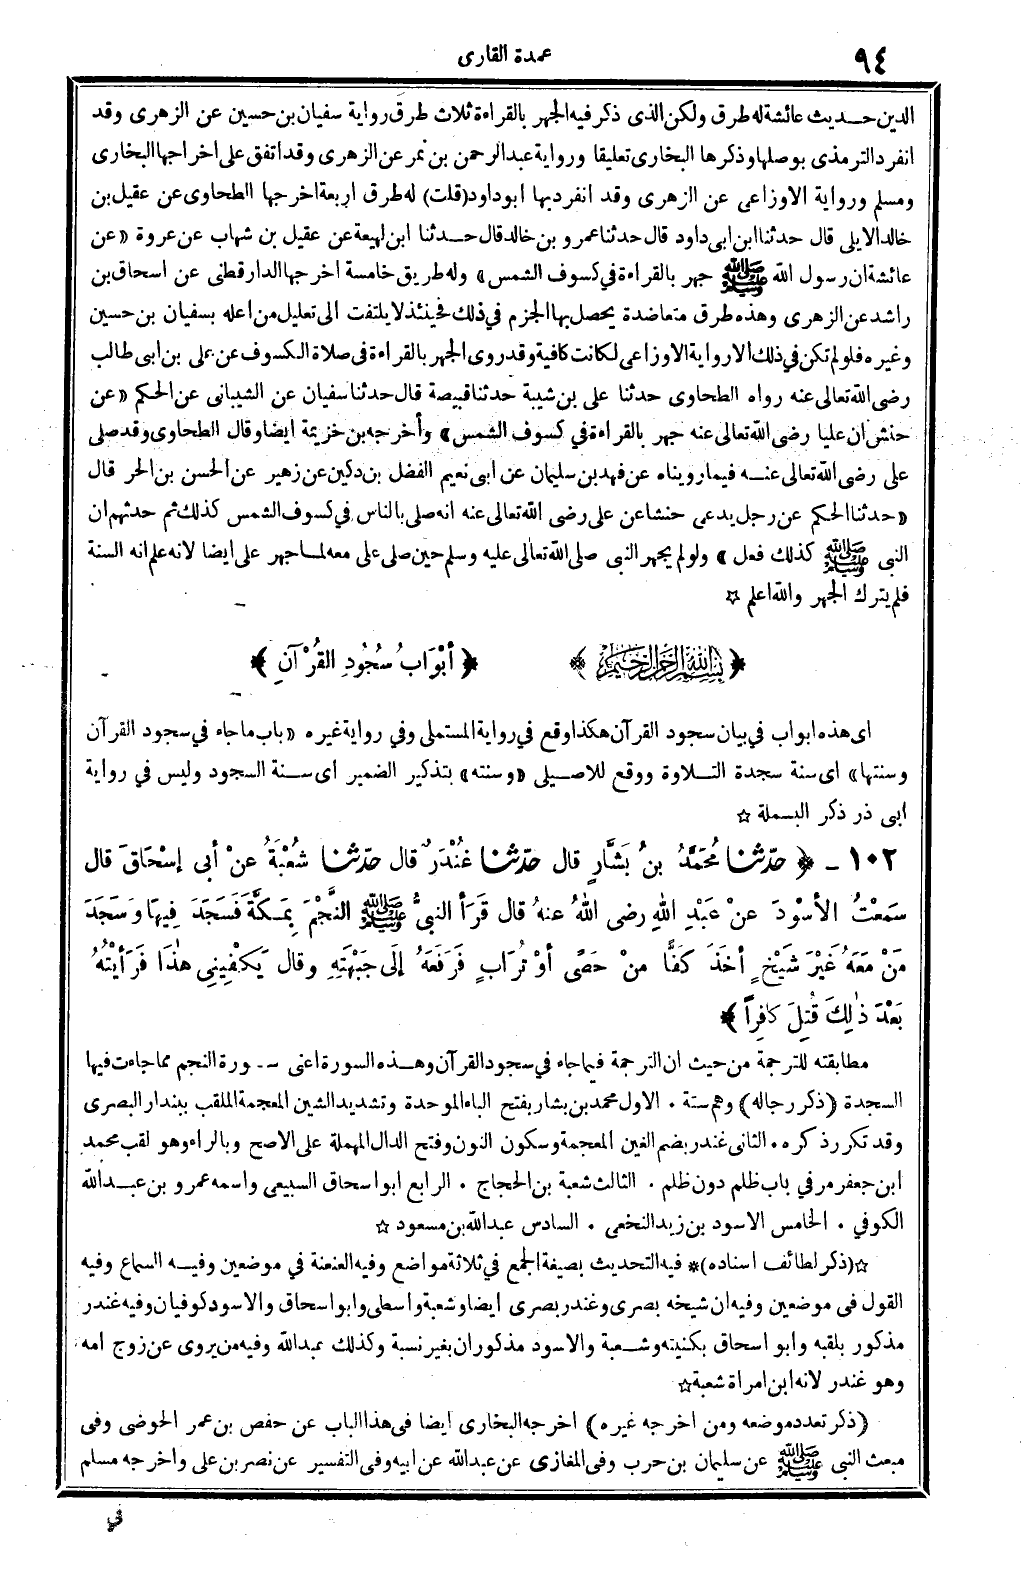 ٩٤
عمدة القارى
الدين حديث عائشة له طرق ولكن الذى ذكر فيه الجهر بالقراءة ثلاث طرق رواية سفيان بن حسين عن الزهرى وقد
انفرد الترمذى بوصلها وذكرها البخارى تعليقا ورواية عبد الرحمن بن نمر عن الزهرى وقد اتفق على اخراجها البخارى
ومسلم ورواية الاوزاعى عن الزهرى وقد انفرد بها ابو داود (قلت) له طرق اربعة اخرجها الطحاوى عن عقيل بن
خالد الايلى قال حدثنا ابن ابى داود قال حدثنا عمرو بن خالد قال حدثنا ابن لهيعة عن عقيل بن شهاب عن عروة «عن
عائشة ان رسول الله ﷺ جهر بالقراءة في كسوف الشمس» وله طريق خامسة اخرجها الدارقطنى عن اسحاق بن
راشد عن الزهرى وهذه طرق متعاضدة يحصل بها الجزم في ذلك فحينئذ لا يلتفت الى تعليل من اعله بسفيان بن حسين
وغيره فلو لم تكن في ذلك الا رواية الاوزاعى لكانت كافية وقد روى الجهر بالقراءة فى صلاة الكسوف عن على بن ابى طالب
رضى الله تعالى عنه رواه الطحاوى حدثنا على بن شيبة حدثنا قبيصة قال حدثنا سفيان عن الشيبانى عن الحكم «عن
حنش ان عليا رضى الله تعالى عنه جهر بالقراءة في كسوف الشمس» وأخرجه بن خزيمة ايضا وقال الطحاوى وقد صلى
على رضى الله تعالى عنه فيما رويناه عن فهد بن سليمان عن أبى نعيم الفضل بن دكين عن زهير عن الحسن بن الحر قال
«حدثنا الحكم عن رجل يدعى حنشا عن على رضى الله تعالى عنه انه صلى بالناس في كسوف الشمس كذلك ثم حدثهم ان
النبى ﷺ كذلك فعل» ولو لم يجهر النبى صلى الله تعالى عليه وسلم حين صلى على معه لما جهر على ايضا لانه علم انه السنة
فلم يترك الجهر والله اعلم ☆
﴿ بسم الله الرحمن الرحيم ﴾ ﴿ أَبْوَابُ سُجُودِ القُرْآنِ ﴾
اى هذه ابواب في بيان سجود القرآن هكذا وقع في رواية المستملى وفي رواية غيره «باب ما جاء في سجود القرآن
وسنتها» اى سنة سجدة التلاوة ووقع للاصيلى «وسنته» بتذكير الضمير اى سنة السجود وليس في رواية
ابى ذر ذكر البسملة ☆
١٠٢ - ﴿ حدّثنا مُحَمَّدُ بنُ بَشَّارٍ قال حدّثنا غُنْدَرٌ قال حدّثنا شُعْبَةُ عنْ أبى إسْحَاقَ قال
سَمَعْتُ الأسْوَدَ عنْ عَبْدِ اللهِ رضى اللهُ عنهُ قال قَرَأَ النبىُّ ﷺ النَّجْمَ بِمَكَّةَ فَسَجَدَ فِيهَا وَسَجَدَ
مَنْ مَعَهُ غَيْرَ شَيْخٍ أخَذَ كَفًّا مِنْ حَصًى أوْ تُرَابٍ فَرَفَعَهُ إلَى جَبْهَتِهِ وقال يَكْفِينِى هذَا فَرَأيْتُهُ
بَعْدَ ذٰلِكَ قُتِلَ كافِراً ﴾
مطابقته للترجمة من حيث ان الترجمة فيما جاء في سجود القرآن وهذه السورة اعنى سورة النجم مما جاءت فيها
السجدة (ذكر رجاله) وهم ستة . الاول محمد بن بشار بفتح الباء الموحدة وتشديد الشين المعجمة الملقب ببندار البصرى
وقد تكرر ذكره . الثانى غندر بضم الغين المعجمة وسكون النون وفتح الدال المهملة على الاصح وبالراء وهو لقب محمد
ابن جعفر مر في باب ظلم دون ظلم . الثالث شعبة بن الحجاج . الرابع ابو اسحاق السبيعى واسمه عمرو بن عبد الله
الكوفي . الخامس الاسود بن زيد النخعى . السادس عبد الله بن مسعود ☆
☆(ذكر لطائف اسناده)* فيه التحديث بصيغة الجمع في ثلاثة مواضع وفيه العنعنة في موضعين وفيه السماع وفيه
القول فى موضعين وفيه ان شيخه بصرى وغندر بصرى ايضا وشعبة واسطى وابو اسحاق والاسود كوفيان وفيه غندر
مذكور بلقبه وأبو اسحاق بكنيته وشعبة والاسود مذكوران بغير نسبة وكذلك عبد الله وفيه من يروى عن زوج امه
وهو غندر لانه ابن امراة شعبة☆
(ذكر تعدد موضعه ومن اخرجه غيره) اخرجه البخارى ايضا فى هذا الباب عن حفص بن عمر الحوضى وفى
مبعث النبى ﷺ عن سليمان بن حرب وفى المغازى عن عبد الله عن ابيه وفى التفسير عن نصر بن على واخرجه مسلم
في